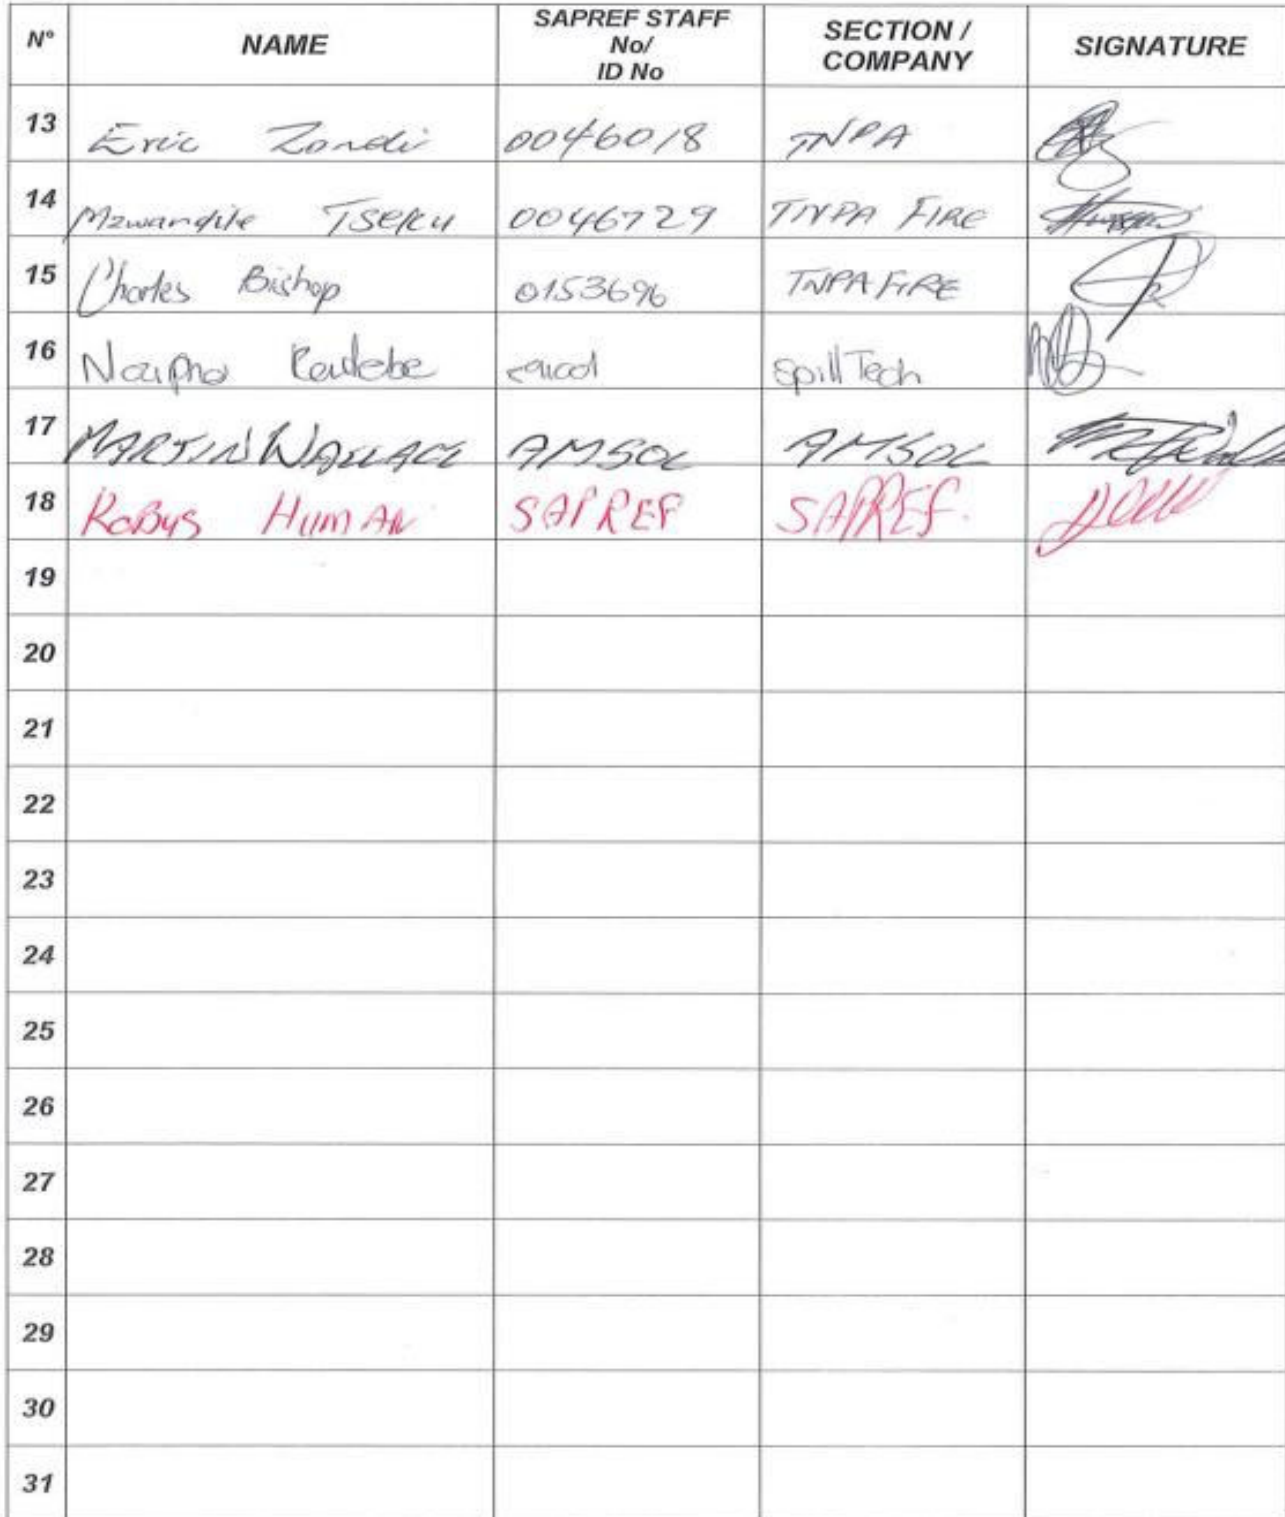 N° NAME SAPREF STAFF No/ ID No SECTION / COMPANY SIGNATURE
13 Eric Zondi 0046018 TNPA
14 Mzwandile Tseku 0046729 TNPA FIRE
15 Charles Bishop 0153696 TNPA FIRE
16 Spill Tech
17 MARTIN WALLACE AMSOL AMSOL
18 KOBUS HUMAN SAPREF SAPREF.
19
20
21
22
23
24
25
26
27
28
29
30
31